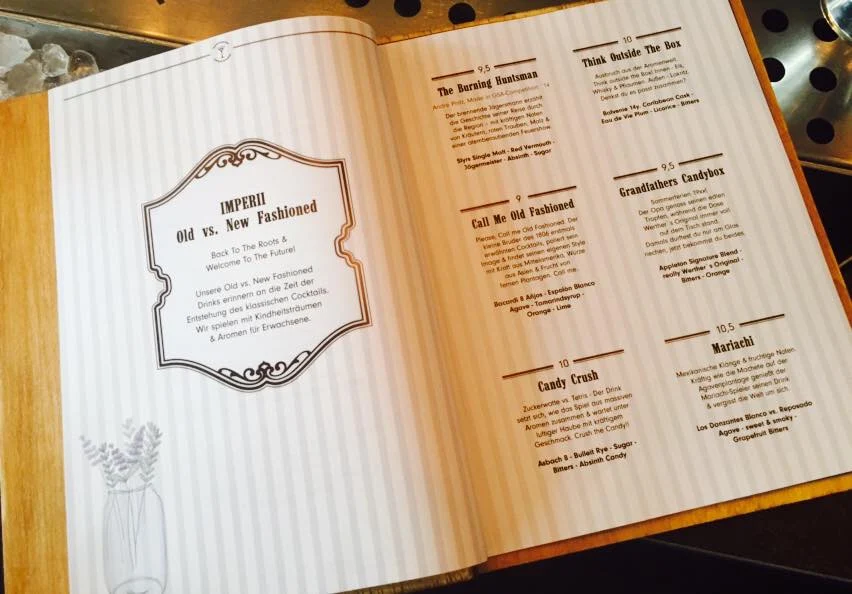 IMPERII
Old vs. New Fashioned
Back To The Roots &
Welcome To The Future!
Unsere Old vs. New Fashioned
Drinks erinnern an die Zeit der
Entstehung des klassischen Cocktails.
Wir spielen mit Kindheitsträumen
& Aromen für Erwachsene.
9,5
The Burning Huntsman
Andre Pintz, Made in GSA-Competition ´14
Der brennende Jägersmann erzählt
die Geschichte seiner Reise durch
die Region - mit kräftigen Noten
von Kräutern, roten Trauben, Malz &
einer atemberaubenden Feuershow.
Slyrs Single Malt - Red Vermouth -
Jägermeister - Absinth - Sugar
9
Call Me Old Fashioned
Please, Call me Old Fashioned. Der
kleine Bruder des 1806 erstmals
erwähnten Cocktails, poliert sein
Image & findet seinen eigenen Style
mit Kraft aus Mittelamerika, Würze
aus Asien & Frucht von
fernen Plantagen. Call me.
Bacardi 8 Años - Espolòn Blanco
Agave - Tamarindsyrup -
Orange - Lime
10
Candy Crush
Zuckerwatte vs. Tetris - Der Drink
setzt sich, wie das Spiel aus massiven
Aromen zusammen & wartet unter
luftiger Haube mit kräftigem
Geschmack. Crush the Candy!!
Asbach 8 - Bulleit Rye - Sugar -
Bitters - Absinth Candy
10
Think Outside The Box
Ausbruch aus der Aromenwelt.
Think outside the Box! Innen - Eik,
Whisky & Pflaumen. Außen - Lakritz.
Denkst du es passt zusammen?
Balvenie 14y. Caribbean Cask -
Eau de Vie Plum - Licorice - Bitters
9,5
Grandfathers Candybox
Sommerferien 19xx!
Der Opa genoss seinen edlen
Tropfen, während die Dose
Werther´s Original immer voll
auf dem Tisch stand.
Damals durftest du nur am Glas
riechen, jetzt bekommst du beides.
Appleton Signature Blend -
really Werther´s Original -
Bitters - Orange
10,5
Mariachi
Mexikanische Klänge & fruchtige Noten.
Kräftig wie die Machete auf der
Agavenplantage genießt der
Mariachi-Spieler seinen Drink
& vergisst die Welt um sich.
Los Danzantes Blanco vs. Reposado
Agave - sweet & smoky -
Grapefruit Bitters